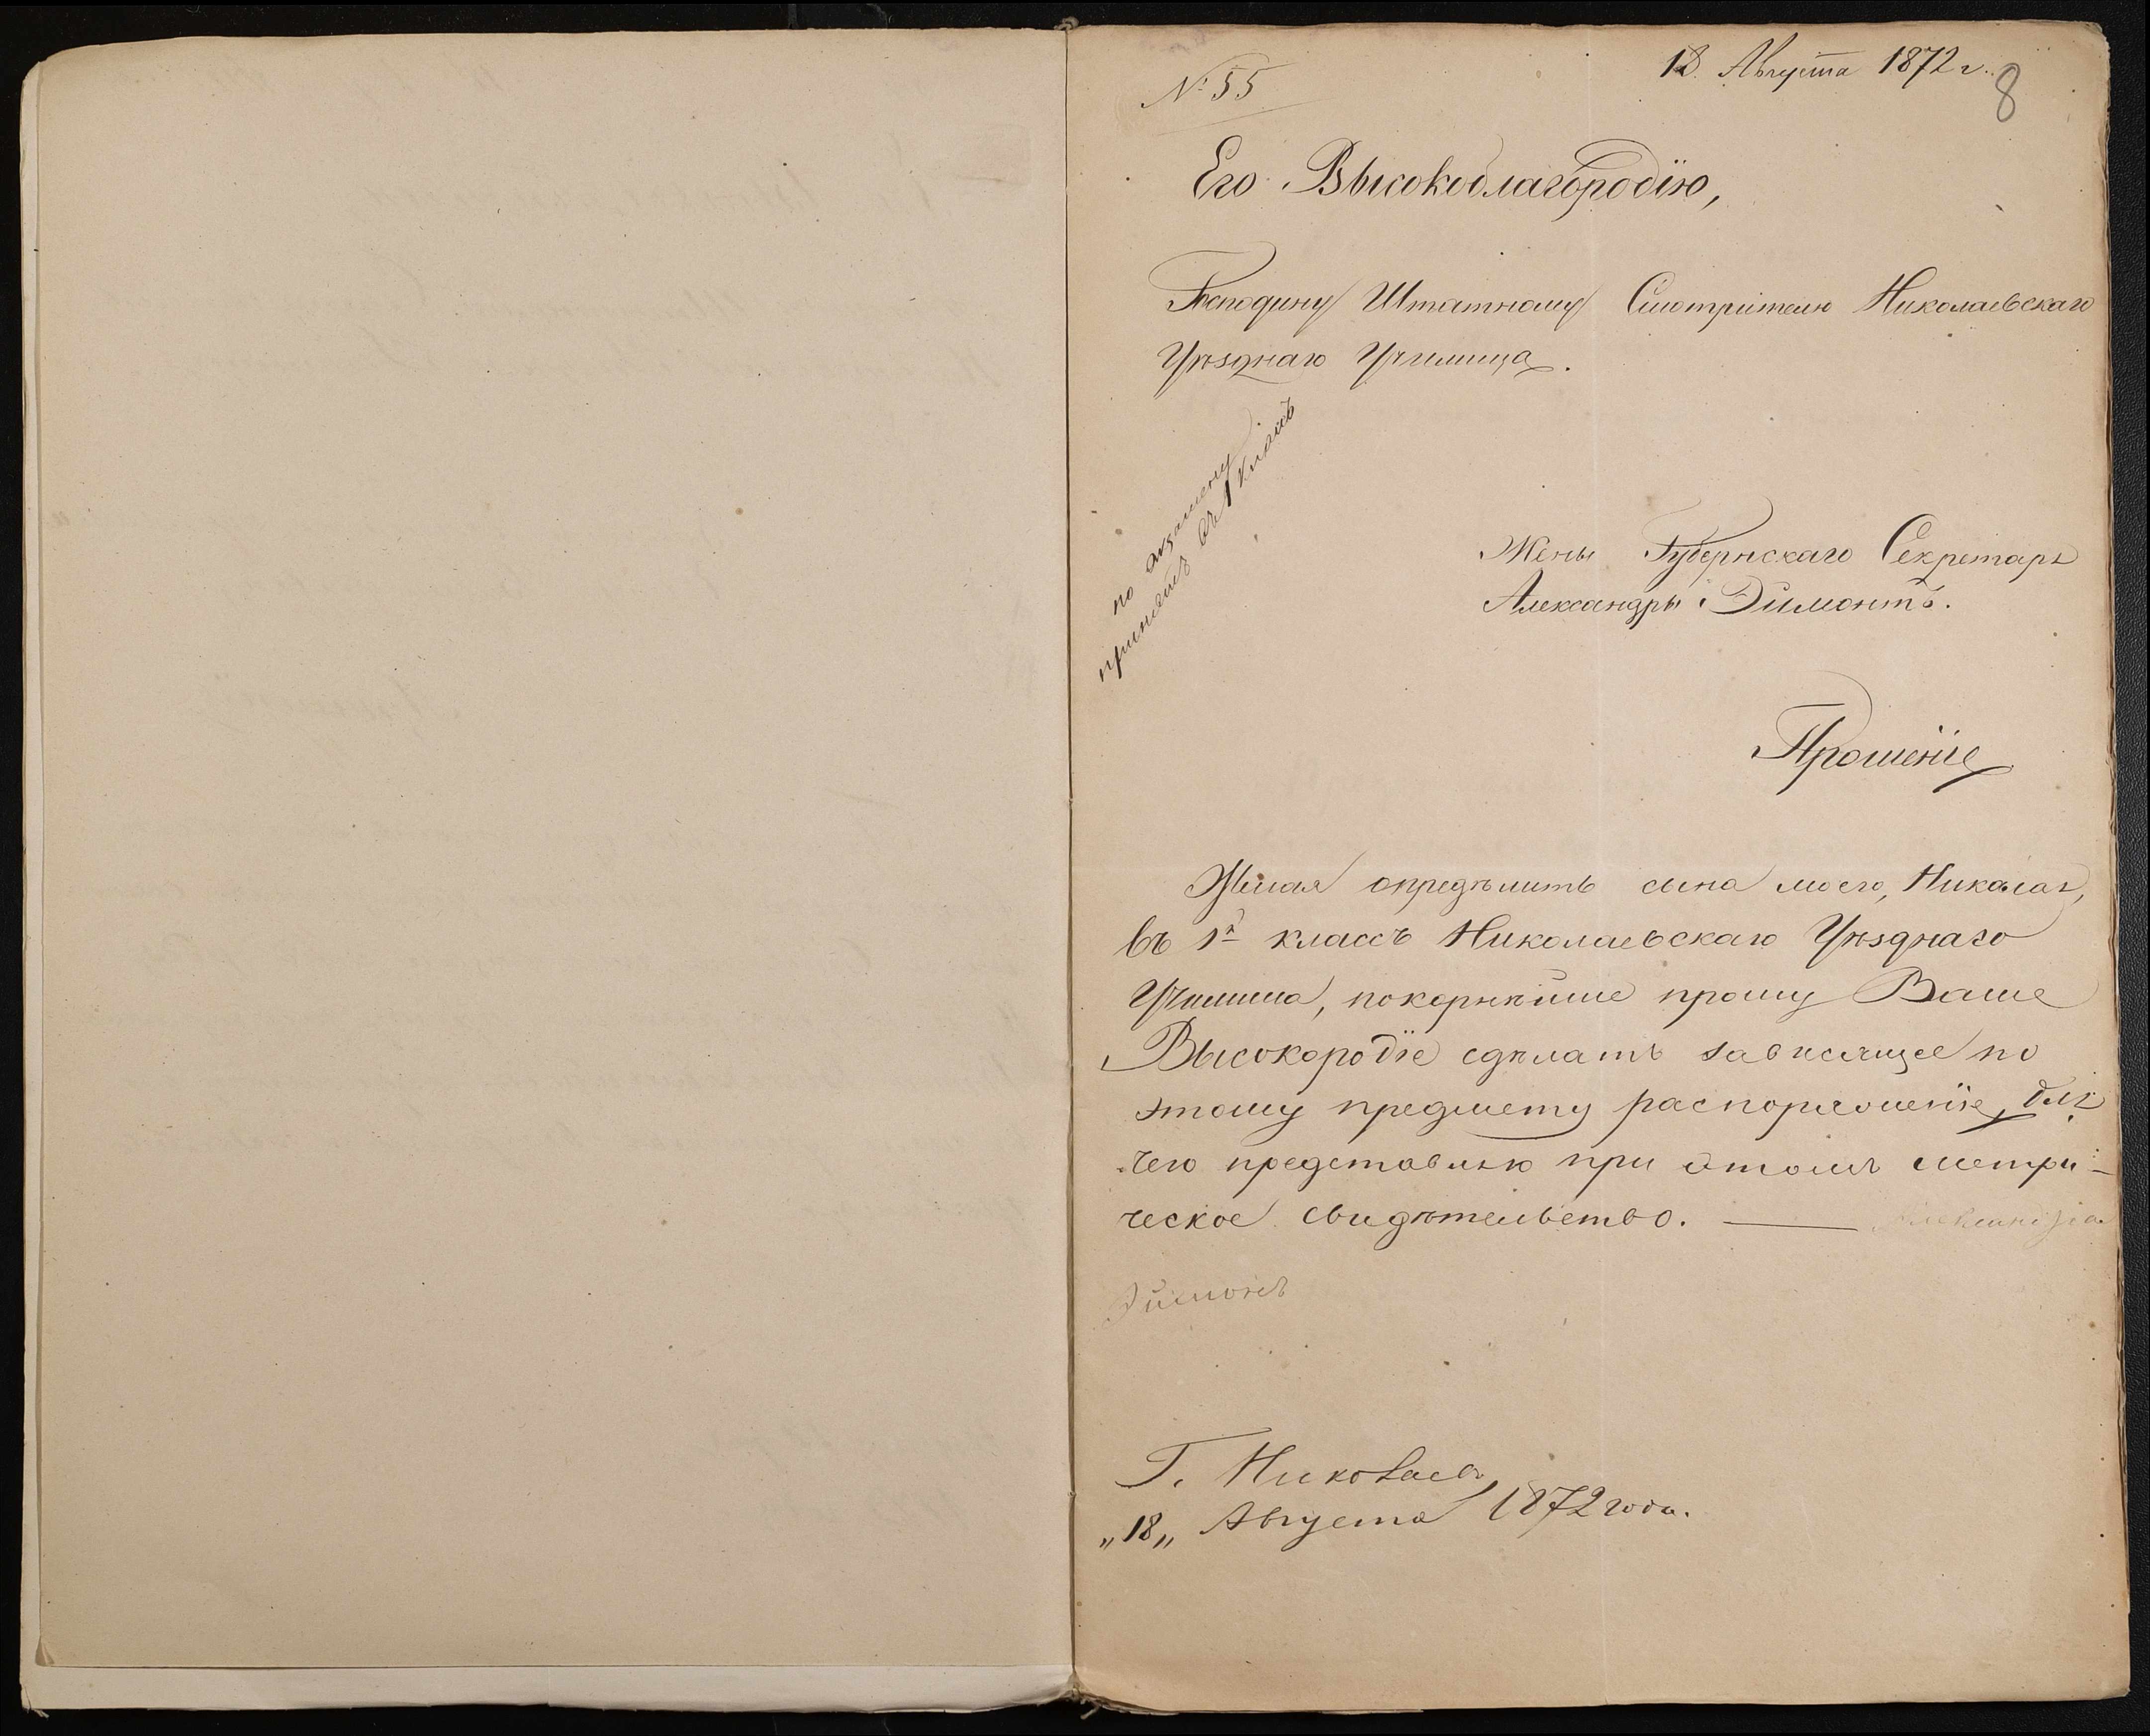 № 55
18 Августа 1872 г.
8
Его Высокоблагородію,
Господину Штатному Смотрителю Николаевскаго
Уѣзднаго Училища.
по экзамену
принятъ въ 1 классъ
Жены Губернскаго Секретаря
Александры Эймонтъ.
Прошеніе
Желая опредѣлить сына моего, Николая,
въ 1й классъ Николаевскаго Уѣзднаго
Училища, покорнѣйше прошу Ваше
Высокородіе сдѣлать зависящее по
этому предмету распоряженіе, для
чего представляю при этомъ метри-
ческое свидѣтельство. — Александра
Эймонтъ
Г. Николаевъ
„18„ Августа 1872 года.